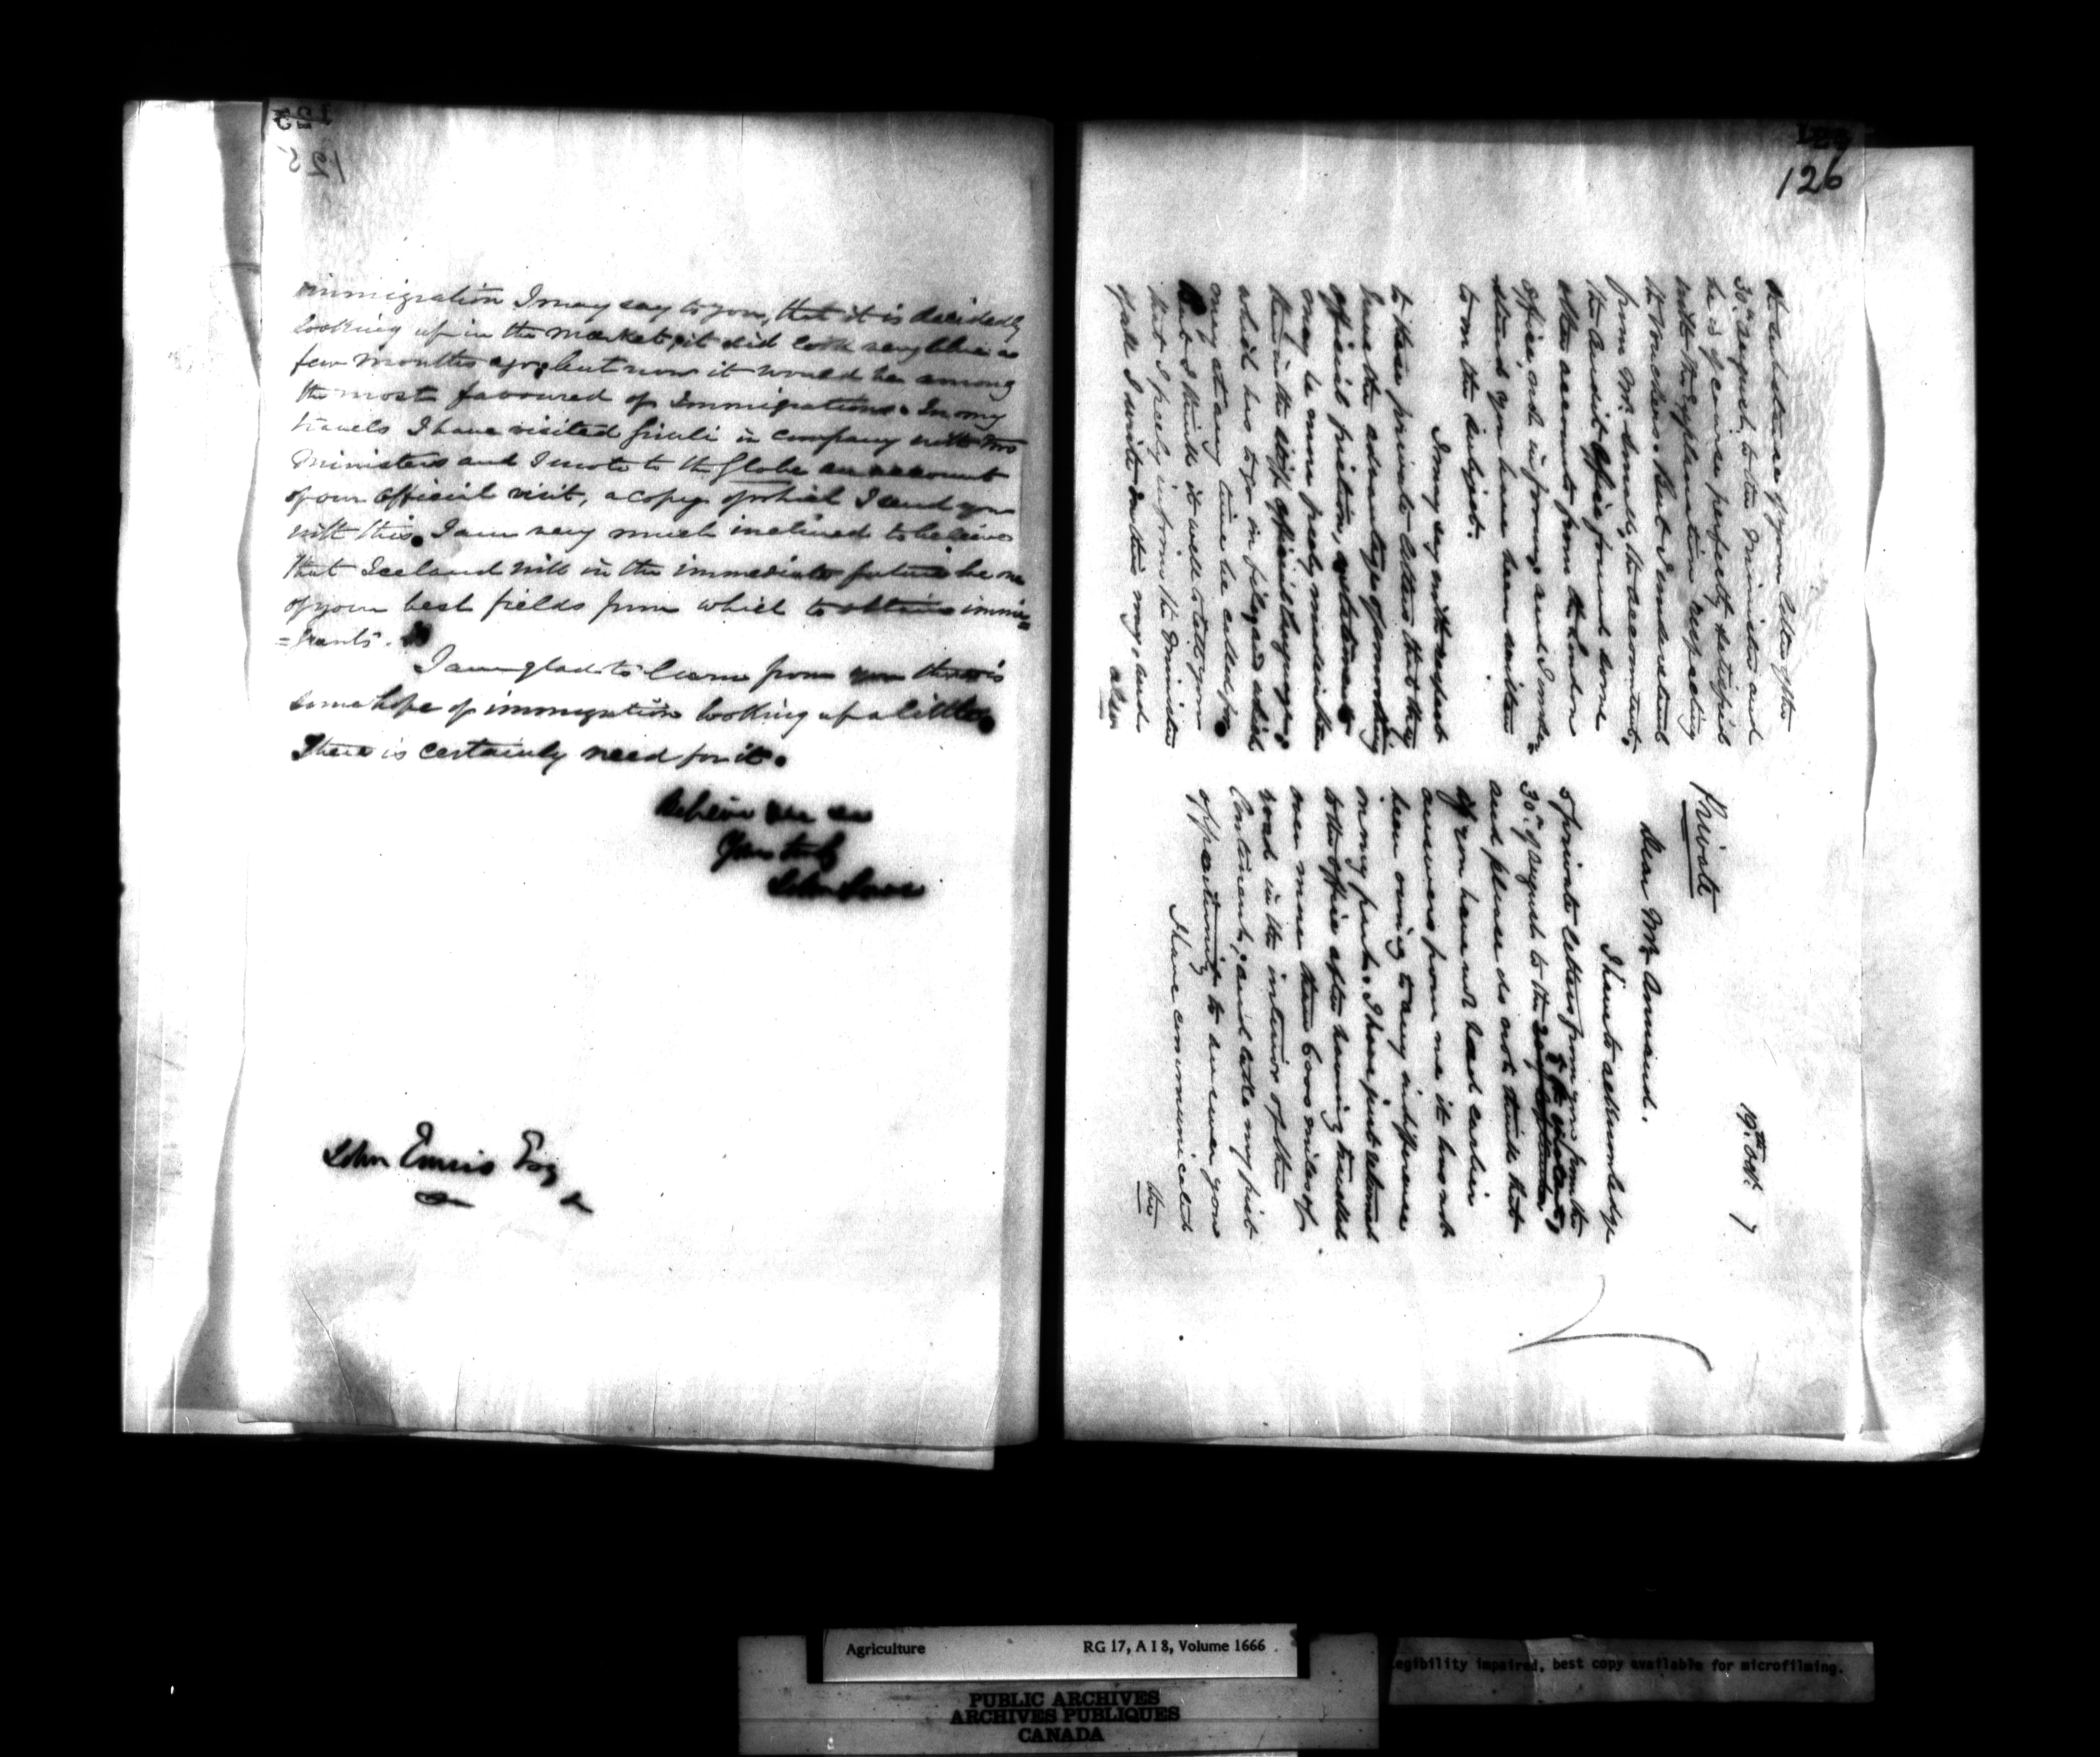 125
125
immigration I may say to you, that it is decidedly
looking up in the market, it did look very blue a
few months ago, but now it would be among
the most favoured of Immigrations. In my
travels I have visited Gimli in company with two
Ministers and I wrote to the Globe an account
of our official visit, a copy of which I send you
with this. I am very much inclined to believe
that Iceland will in the immediate future be one
of your best fields from which to obtain immi=
=grants.
I am glad to learn from you there is
some hope of immigration looking up a little.
There is certainly need for it.
Believe me
Yours truly
John Lowe
John Ennis Esq
126
19th Oct. 7
Private
Dear Mr Annand.
I have to acknowledge
private letters from you from the
30th of August to the
and please do not think that
if you have not had earlier
answers from me it has not
been owing to any indifference
on my part. I have just returned
to the office after having travelled
over more than 6000 miles of
road in the interior of the
Continent, and take my first
opportunity to answer yours
I have communicated
the
the substance of your letter of the
30th August, to the Minister and
he is of course perfectly satisfied
with the explanation respecting
the vouchers. But I understand
from Mr. the accountant,
the Audit Office found some
other accounts from the London
office, not in form, and I under-
stand you have been written
to on the subject.
I may say with respect
to these private letters that they
have the advantage of
official
may be more freely
than in the stiff official language
which has to go in fyled which
may at any time be called for
but I think it well to tell you
that I freely inform the Minister
of all I write in this way, and
also
Agriculture RG 17, A I 8, Volume 1666
PUBLIC ARCHIVES
ARCHIVES PUBLIQUES
CANADA
legibility impaired, best copy available for microfilming.